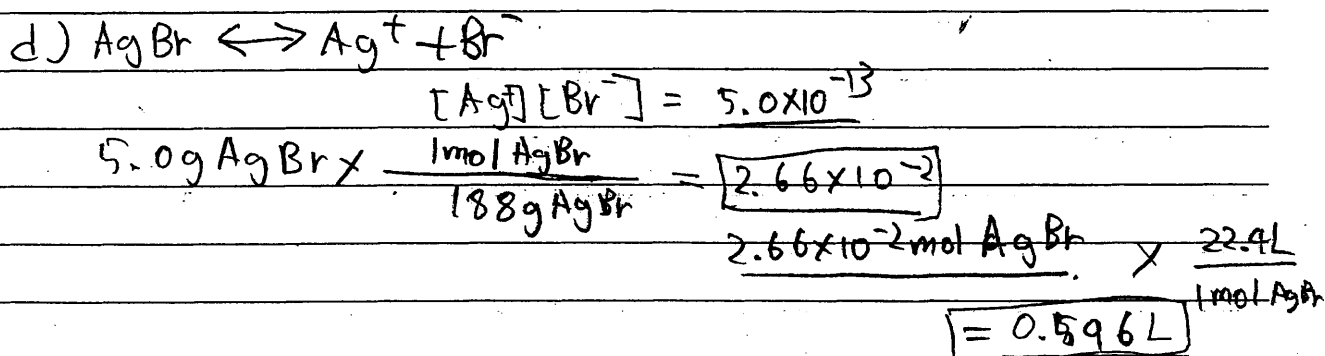 d) AgBr ⟷ Ag⁺ + Br⁻
[Ag⁺][Br⁻] = 5.0×10⁻¹³
5.0g AgBr × 1mol AgBr / 188g AgBr = 2.66×10⁻²
2.66×10⁻² mol AgBr × 22.4L / 1mol AgBr
= 0.596L